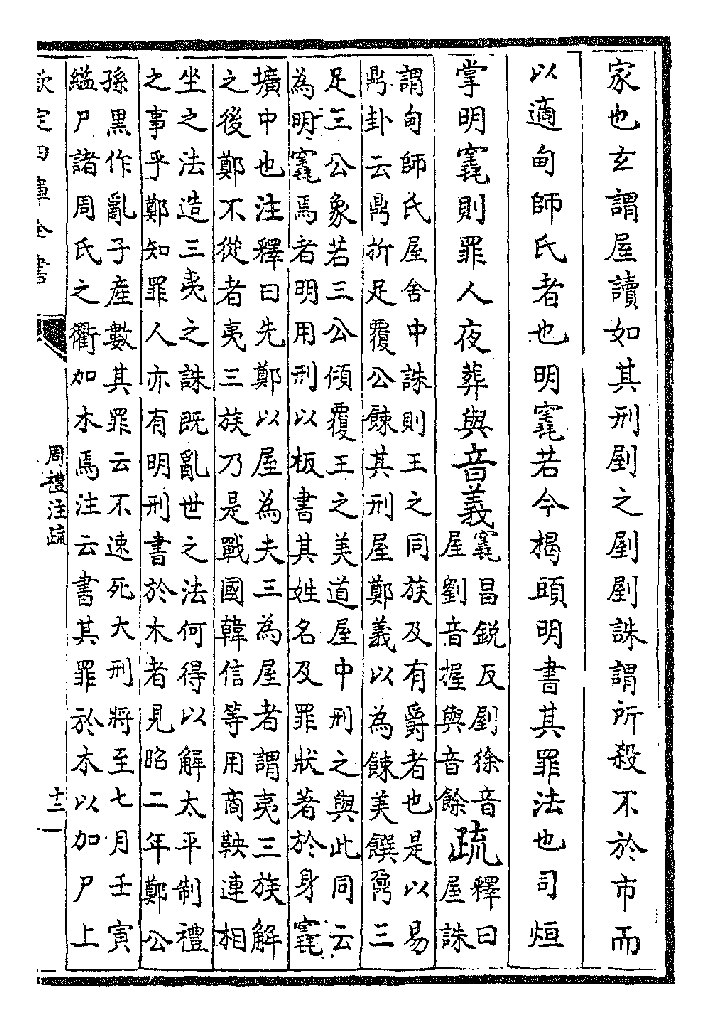 家也玄謂屋讀如其刑剭之剭剭誅謂所殺不於市而
以適甸師氏者也明竁若今楬頭明書其罪法也司烜
掌明竁則罪人夜葬與音義竁昌銳反劉徐音
屋劉音握與音餘疏釋曰
屋誅
謂甸師氏屋舍中誅則王之同族及有爵者也是以易
鼎卦云鼎折足覆公餗其刑屋鄭義以為餗美饌鼎三
足三公象若三公傾覆王之美道屋中刑之與此同云
為明竁焉者明用刑以板書其姓名及罪狀著於身竁
壙中也注釋曰先鄭以屋為夫三為屋者謂夷三族解
之後鄭不從者夷三族乃是戰國韓信等用商鞅連相
坐之法造三夷之誅既亂世之法何得以解太平制禮
之事乎鄭知罪人亦有明刑書於木者見昭二年鄭公
孫黑作亂子產數其罪云不速死大刑將至七月壬寅
縊尸諸周氏之衢加木焉注云書其罪於木以加尸上
欽定四庫全書
周禮注疏
十二